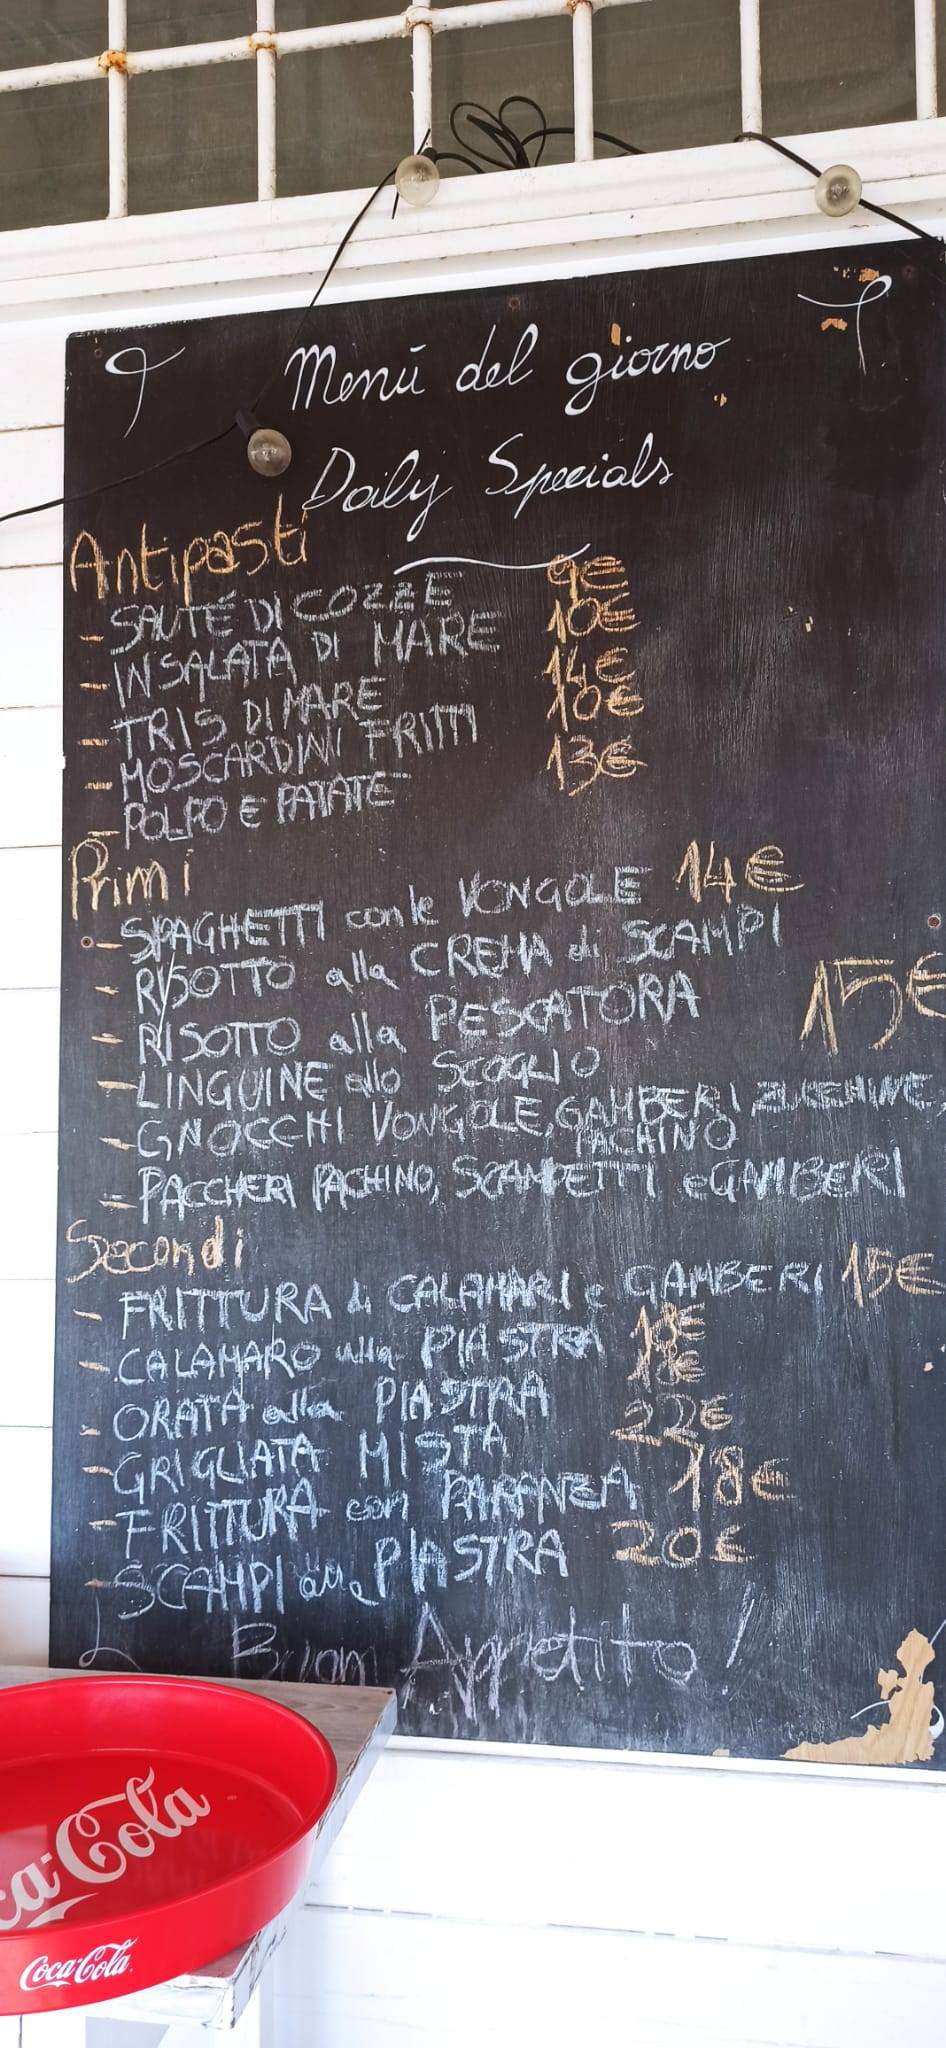 Menù del giorno
Daily Specials
Antipasti
- SAUTÉ DI COZZE 9€
- INSALATA DI MARE 10€
- TRIS DI MARE 14€
- MOSCARDINI FRITTI 10€
- POLPO E PATATE 13€
Primi
- SPAGHETTI con le VONGOLE 14€
- RISOTTO alla CREMA di SCAMPI
- RISOTTO alla PESCATORA 15€
- LINGUINE allo SCOGLIO
- GNOCCHI VONGOLE, GAMBERI ZUCCHINE,
PACHINO
- PACCHERI PACHINO, SCAMPETTI e GAMBERI
Secondi
- FRITTURA di CALAMARI e GAMBERI 15€
- CALAMARO alla PIASTRA
- ORATA alla PIASTRA
- GRIGLIATA MISTA 22€
- FRITTURA con PARANZA 18€
- SCAMPI alla PIASTRA 20€
Buon Appetito!
Coca-Cola
Coca-Cola